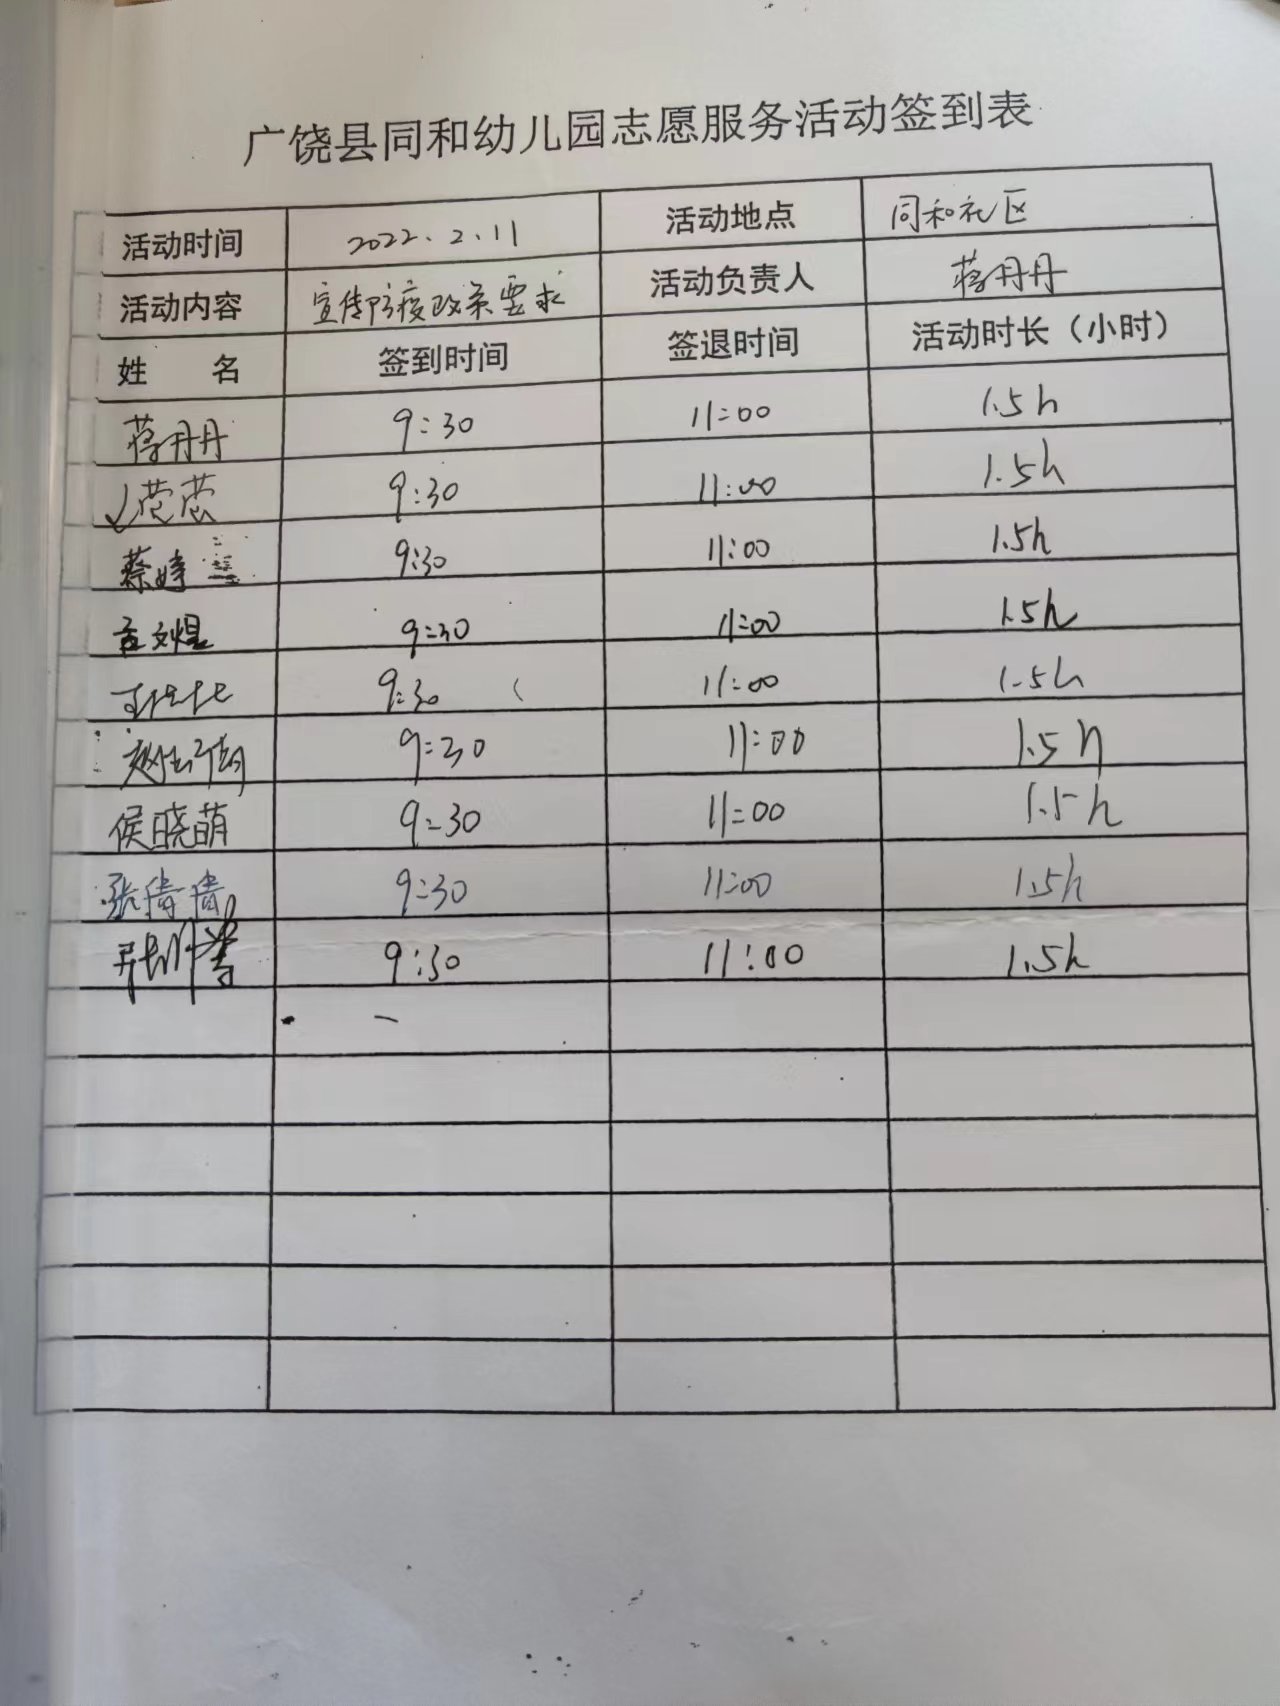 广饶县同和幼儿园志愿服务活动签到表
活动时间 2022.2.11 活动地点 同和社区
活动内容 宣传防疫政策要求 活动负责人 蒋丹丹
姓 名 签到时间 签退时间 活动时长（小时）
蒋丹丹 9:30 11:00 1.5h
9:30 11:00 1.5h
蔡婷 9:30 11:00 1.5h
文煜 9:30 11:00 1.5h
9:30 11:00 1.5h
赵 9:30 11:00 1.5h
侯晓萌 9:30 11:00 1.5h
张倩倩 9:30 11:00 1.5h
9:30 11:00 1.5h